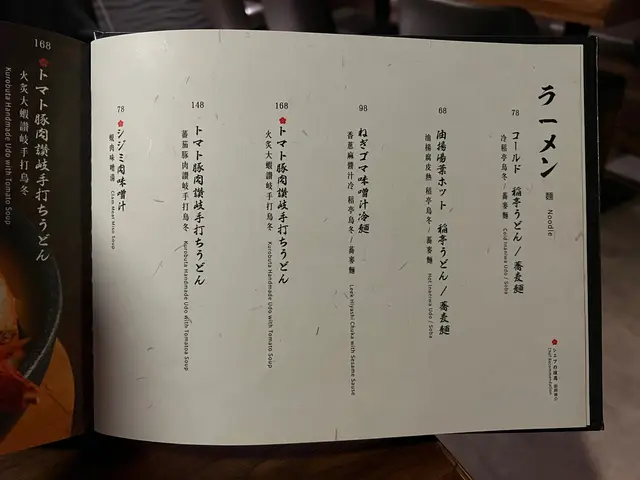 ラーメン 麵 Noodle
78 コールド 稲亭うどん / 蕎麦麺
冷稻亭烏冬/蕎麥麵 Cold Inaniwa Udo / Soba
68 油揚湯葉ホット 稲亭うどん / 蕎麦麺
油揚腐皮熱 稻亭烏冬/蕎麥麵 Hot Inaniwa Udo / Soba
98 ねぎゴマ味噌汁冷麺
香蔥麻醬汁冷 稻亭烏冬/蕎麥麵 Leek Hiyashi Chuka with Sesame Sause
168 トマト豚肉讃岐手打ちうどん
火炙大蝦讚岐手打烏冬 Kurobuta Handmade Udo with Tomato Soup
148 トマト豚肉讃岐手打ちうどん
蕃茄豚肉讚岐手打烏冬 Kurobuta Handmade Udo with Tomatoa Soup
78 シジミ肉味噌汁
蜆肉味噌湯 Clam Meat Miso Soup
シェフの推薦
Chef Recommendation
168 トマト豚肉讃岐手打ちうどん
火炙大蝦讚岐手打烏冬
Kurobuta Handmade Udo with Tomato Soup